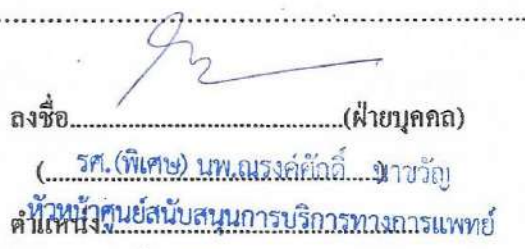 ลงชื่อ........................................(ฝ่ายบุคคล)
(.....รศ.(พิเศษ) นพ.ณรงค์ศักดิ์ นาขวัญ
ตำแหน่ง หัวหน้าศูนย์สนับสนุนการบริการทางการแพทย์